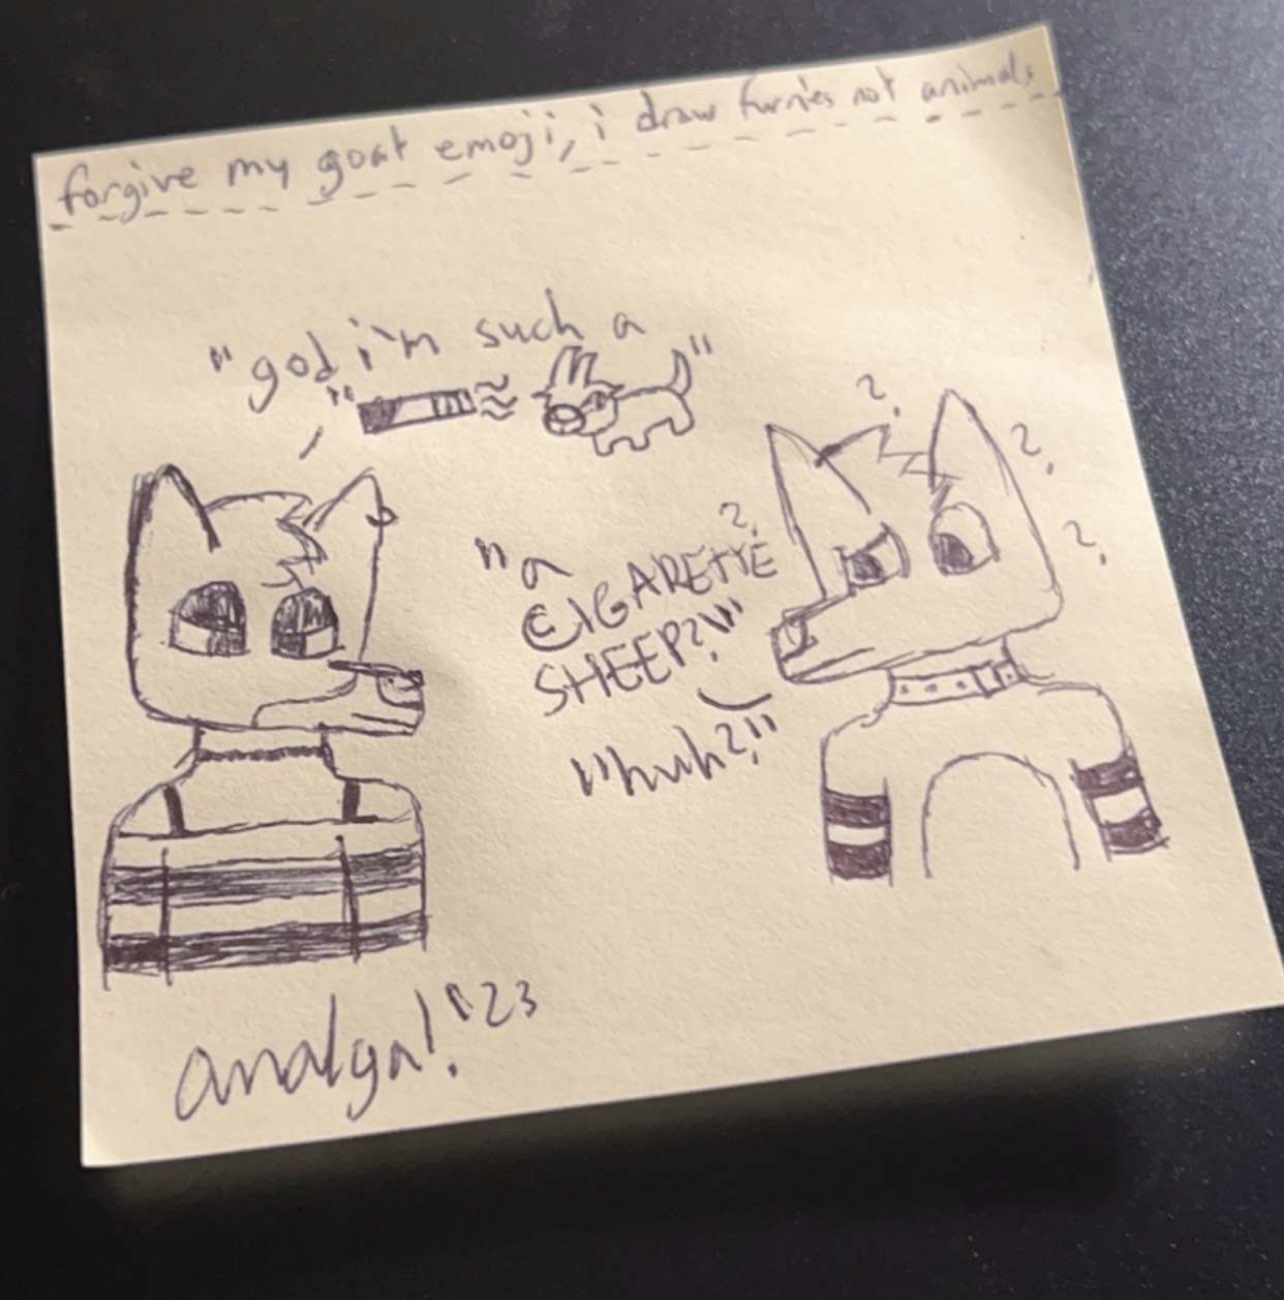 forgive my goat emoji, i draw furries not animals
"god i'm such a
"
"a
CIGARETTE
SHEEP?"
"huh?"
?
?
?
?
analga! '23